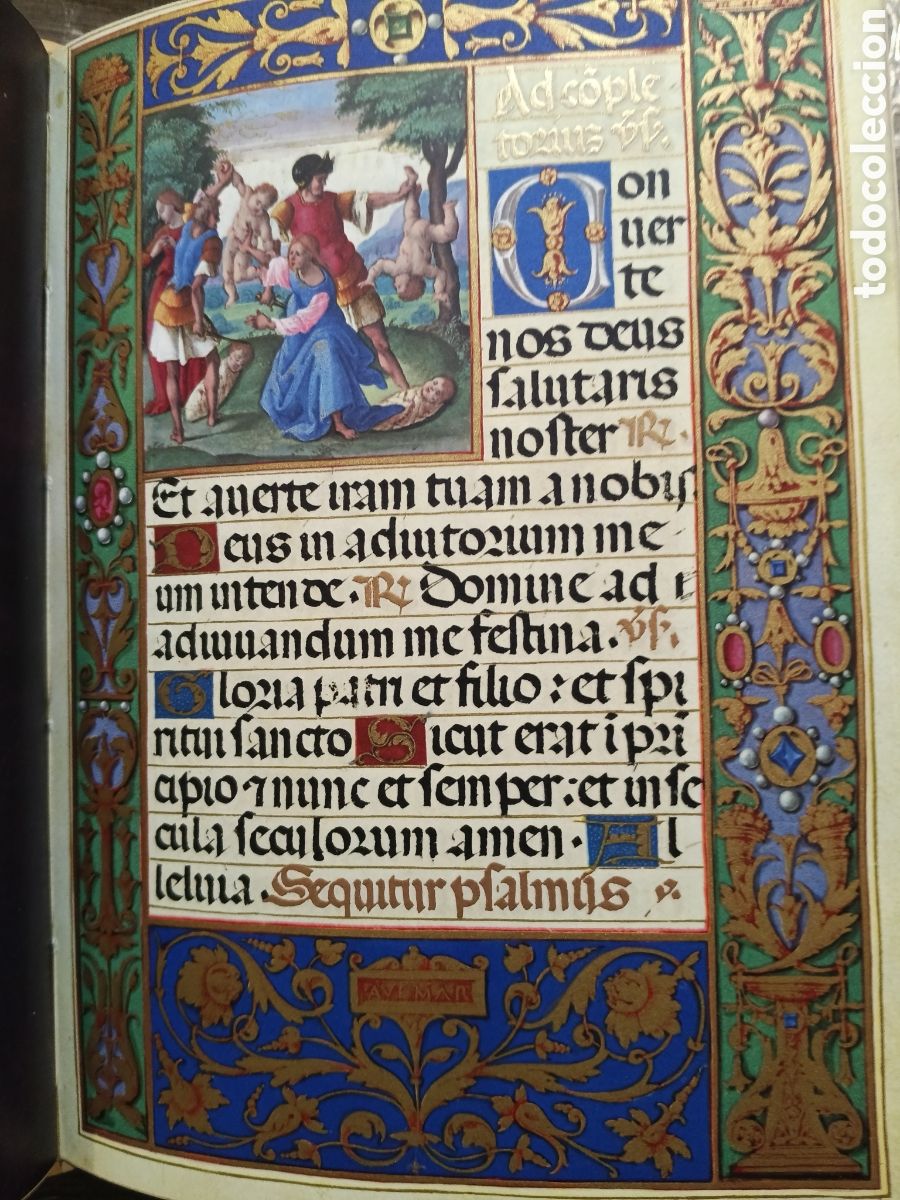 Ad cõple
toriuz v̅s̅.
Con
uer
te
nos deus
salutaris
noster R.
Et auerte iram tuam a nobis
Deus in adiutorium me
um intende. R Domine ad
adiuuandum me festina. v̅s̅.
Gloria patri et filio: et spi
ritui sancto Sicut erat i pri
cipio ⁊ nunc et semper: et in se
cula seculorum amen. Al
leluia. Sequitur psalmus
AVE MAR
todocoleccion